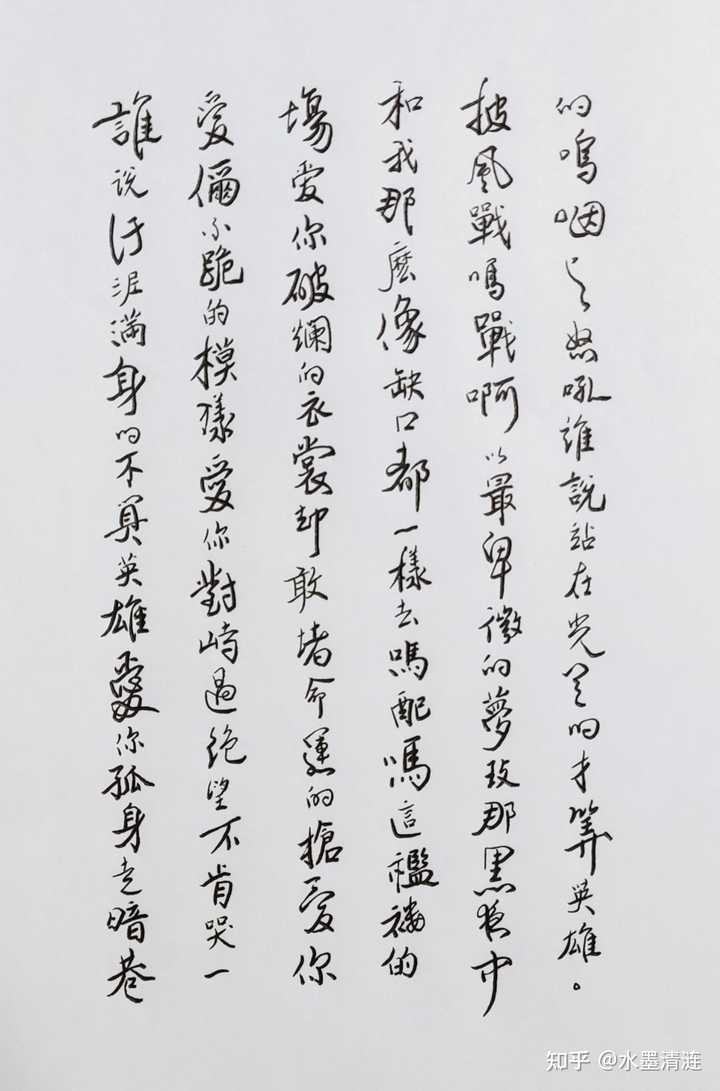 誰说汙泥滿身的不算英雄愛你孤身走暗巷
愛儞不跪的模樣愛你對峙過绝望不肯哭一
塲爱你破爛的衣裳却敢堵命運的槍愛你
和我那麽像缺口都一樣去嗎配嗎這襤褸的
披風戰嗎戰啊以最卑微的夢致那黑夜中
的嗚咽与怒吼誰說站在光里的才算英雄。
知乎 @水墨清涟